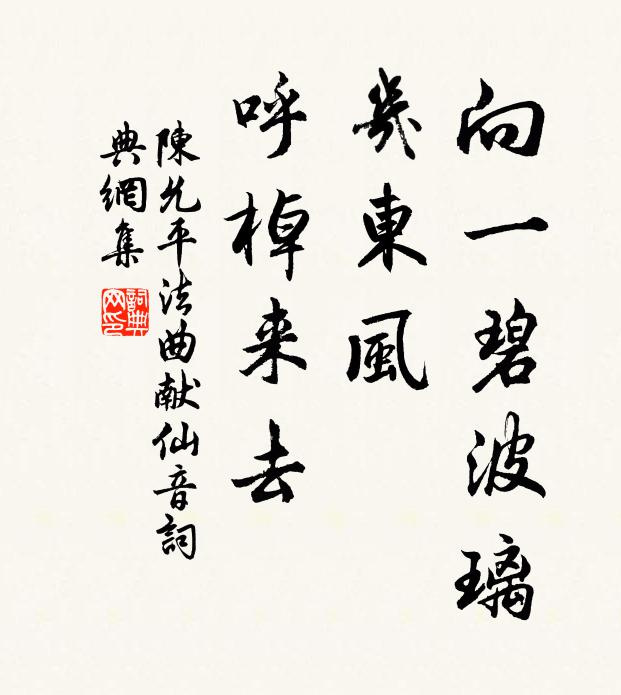 向一碧波璃
幾東風
呼棹来去
陳允平法曲献仙音詞
典網集
詞典網印